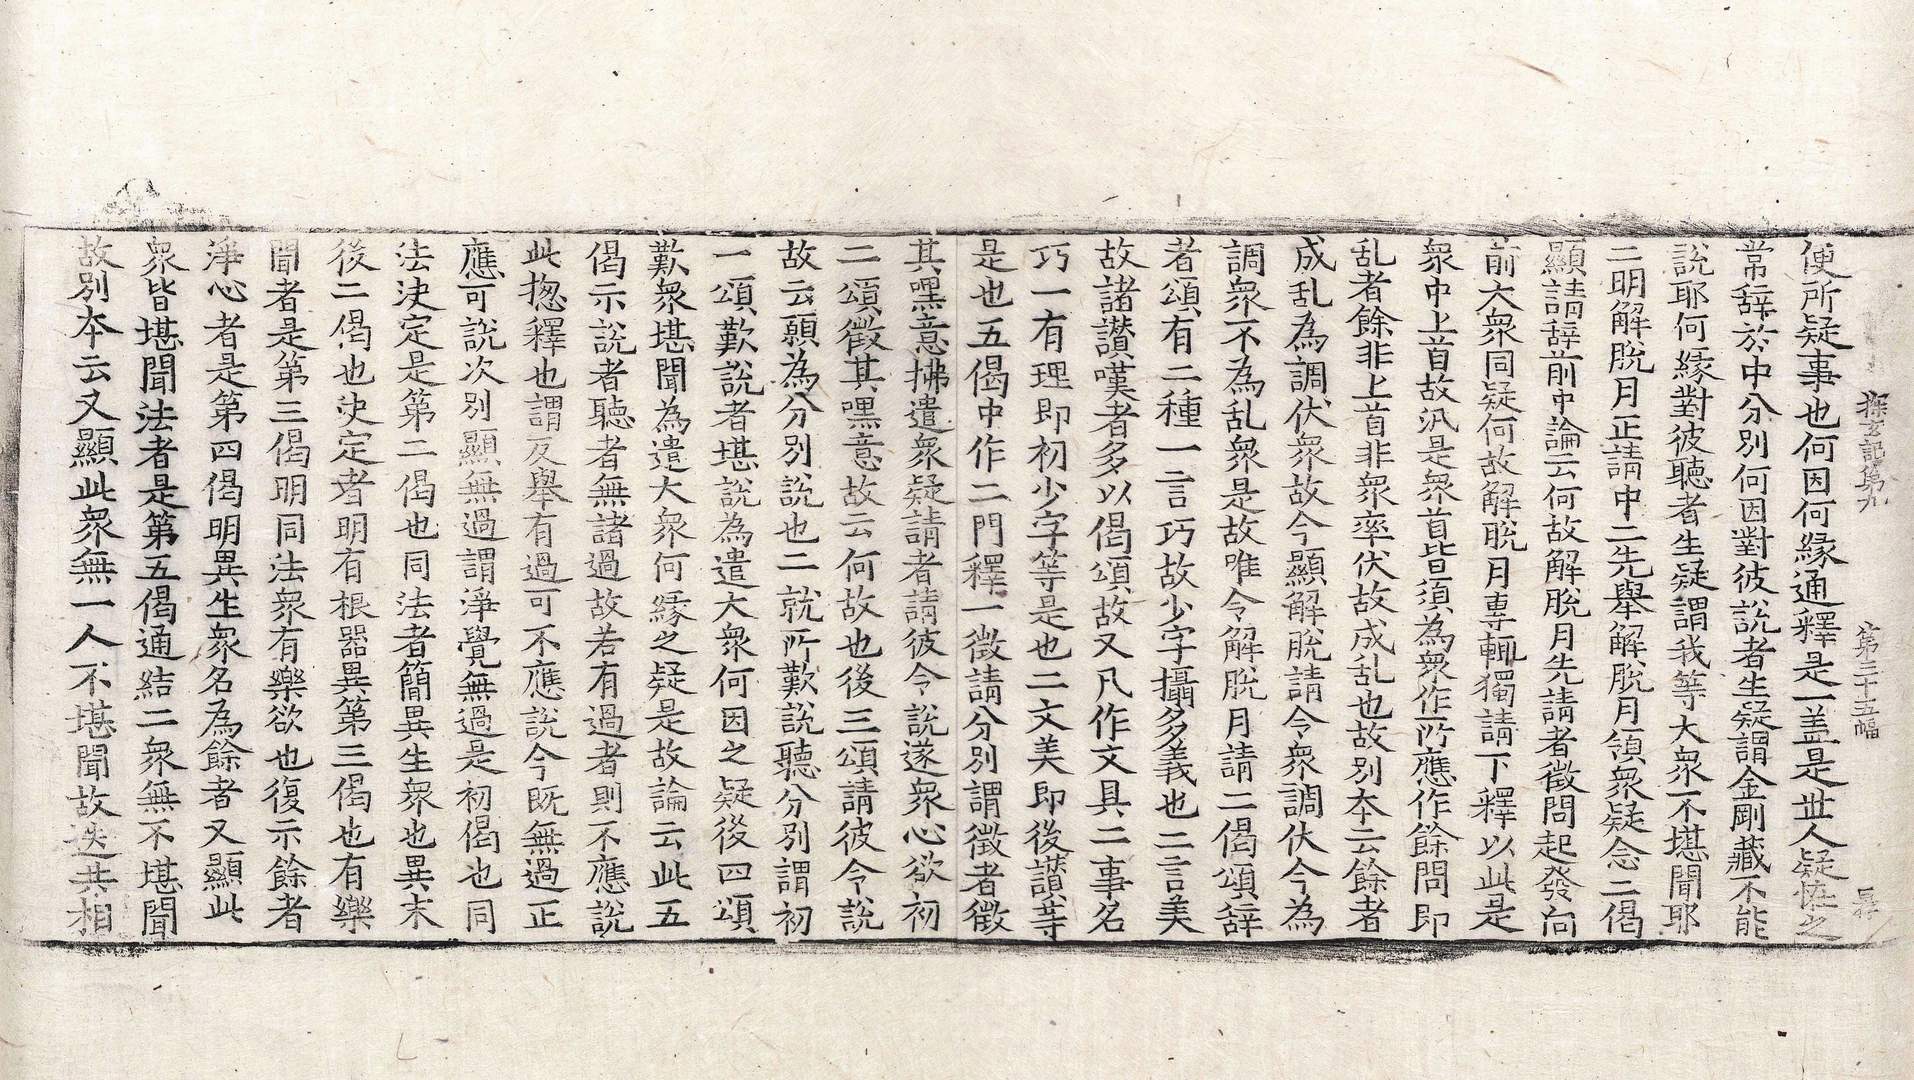 探玄記第九 第三十五幅
便所疑事也何因何緣通釋是一盖是世人疑恠之
常辞於中分別何因對彼說者生疑謂金剛藏不能
說耶何緣對彼聽者生疑謂我等大衆不堪聞耶
二明解脫月正請中二先舉解脫月領衆疑念二偈
顯請辞前中論云何故解脫月先請者徵問起發何
前大衆同疑何故解脫月專輒獨請下釋以此是
衆中上首故汎是衆首皆須為衆作所應作餘問即
乱者餘非上首非衆率伏故成乱也故別本云餘者
成乱為調伏衆故今顯解脫請令衆調伏今為
調衆不為乱衆是故唯令解脫月請二偈頌辞
者頌有二種一言巧故少字攝多義也二言美
故諸讃嘆者多以偈頌故又凡作文具二事名
巧一有理即初少字等是也二文美即後讃等
是也五偈中作二門釋一徵請分別謂徵者徵
其嘿意拂遣衆疑請者請彼令說遂衆心欲初
二頌徵其嘿意故云何故也後三頌請彼令說
故云願為分別說也二就所歎說聽分別謂初
一頌歎說者堪說為遣大衆何因之疑後四頌
歎衆堪聞為遣大衆何緣之疑是故論云此五
偈示說者聽者無諸過故若有過者則不應說
此揔釋也謂反舉有過可不應說今旣無過正
應可說次別顯無過謂淨覺無過是初偈也同
法決定是第二偈也同法者簡異生衆也異末
後二偈也決定者明有根器異第三偈也有樂
聞者是第三偈明同法衆有樂欲也復示餘者
淨心者是第四偈明異生衆名為餘者又顯此
衆皆堪聞法者是第五偈通結二衆無不堪聞
故別本云又顯此衆無一人不堪聞故迭共相